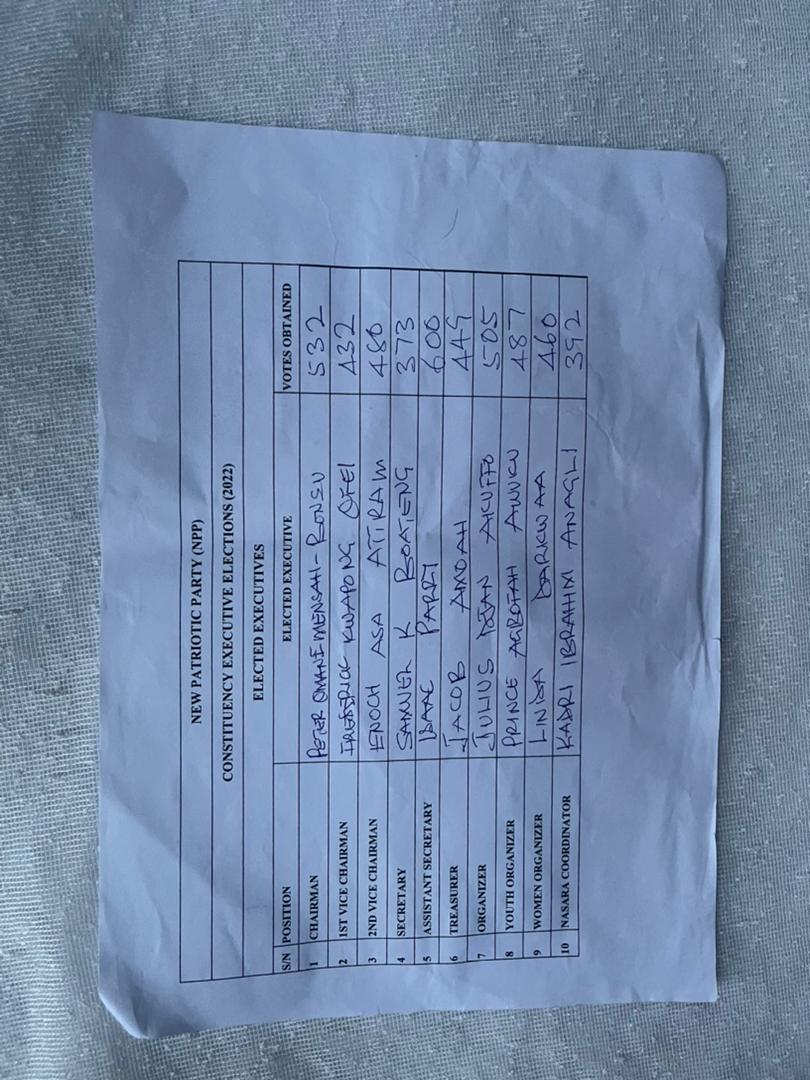 NEW PATRIOTIC PARTY (NPP)
CONSTITUENCY EXECUTIVE ELECTIONS (2022)
ELECTED EXECUTIVES
S/N POSITION ELECTED EXECUTIVE VOTES OBTAINED
1 CHAIRMAN PETER OMANE MENSAH-BONSU 532
2 1ST VICE CHAIRMAN FREDERICK KWAPONG OFEI 432
3 2ND VICE CHAIRMAN ENOCH ASA ATIRAM 480
4 SECRETARY SAMUEL K BOATENG 373
5 ASSISTANT SECRETARY ISAAC PARRY 600
6 TREASURER JACOB AMOAH 449
7 ORGANIZER JULIUS DJAN AKUFFO 505
8 YOUTH ORGANIZER PRINCE AGBOTAH 487
9 WOMEN ORGANIZER LINDA DARKWAA 460
10 NASARA COORDINATOR KADRI IBRAHIM ANAGLI 392